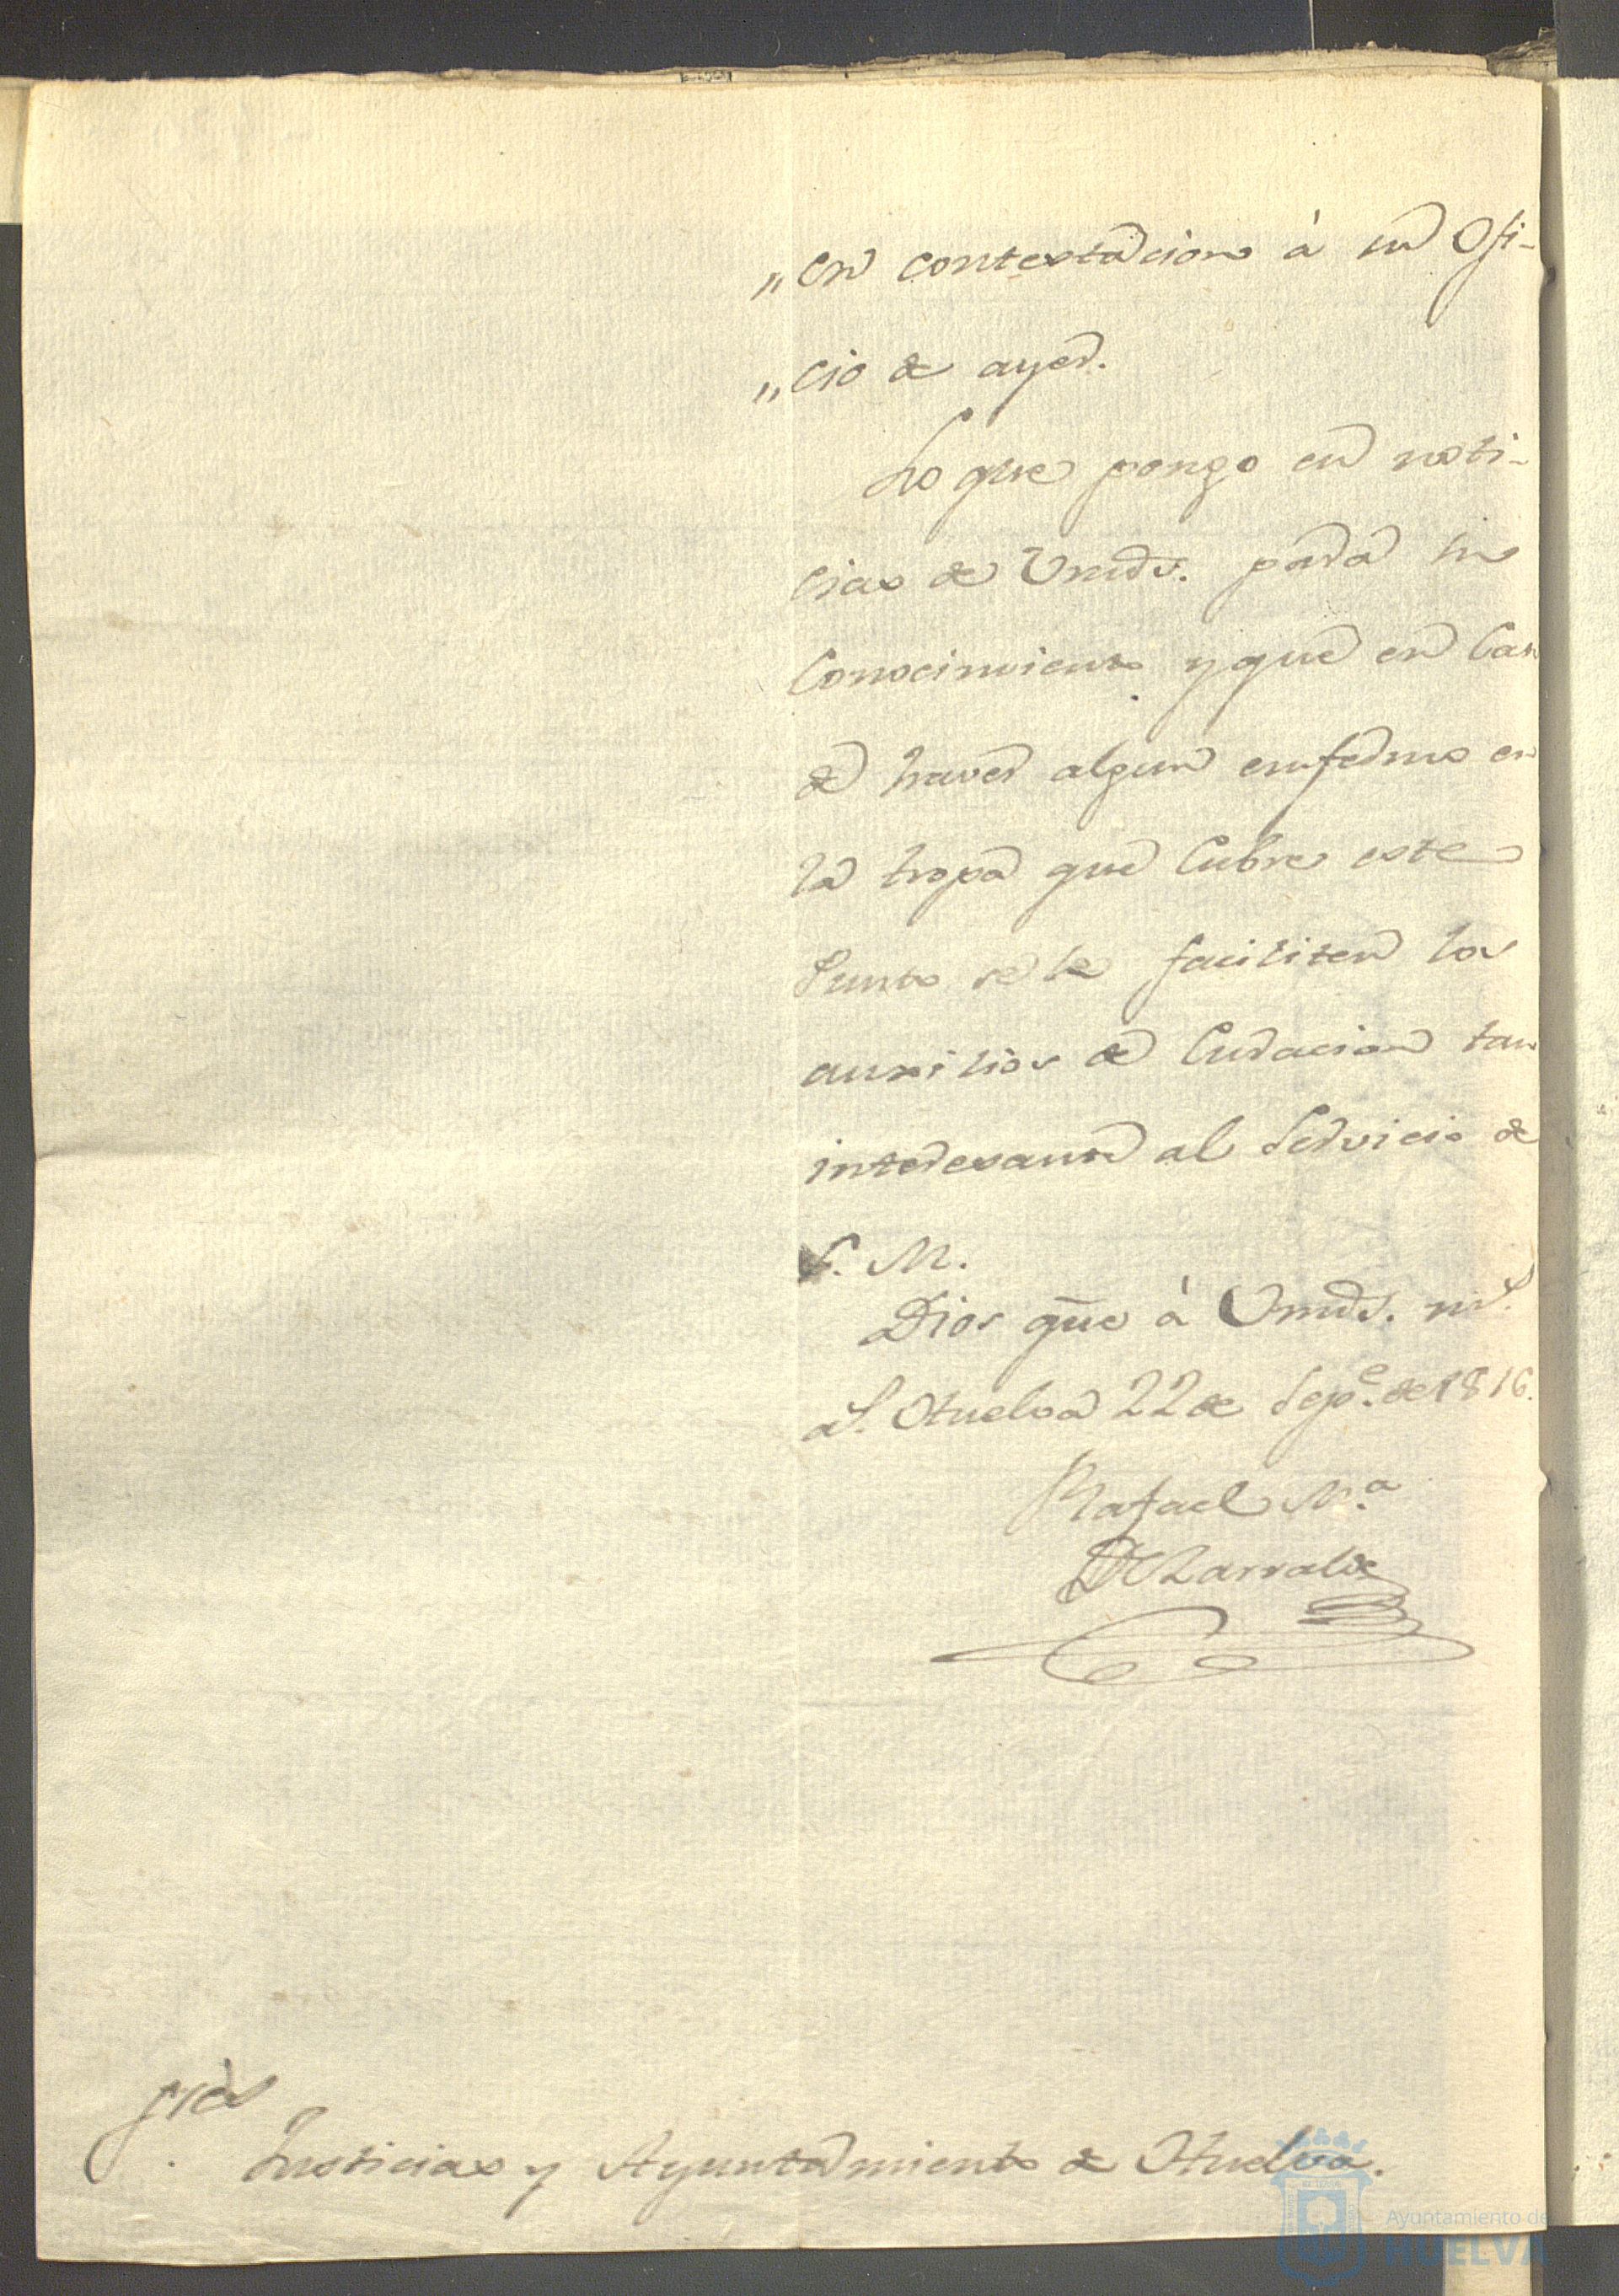 „en contestacion à su Ofi-
„cio de ayer.
Lo que pongo en noti-
cias de Vmds. para su
Conocimiento y que en Caso
de haver algun enfermo en
la tropa que Cubre este
Punto se le faciliten los
auxilios de Curacion tan
interesante al Servicio de
S. M.
Dios gue à Vmds. ms.
as. Huelva 22 de Sepe. de 1816.
Rafael Ma.
De Larralde
Justicias y Ayuntamiento de Huelva.
Ayuntamiento de
HUELVA